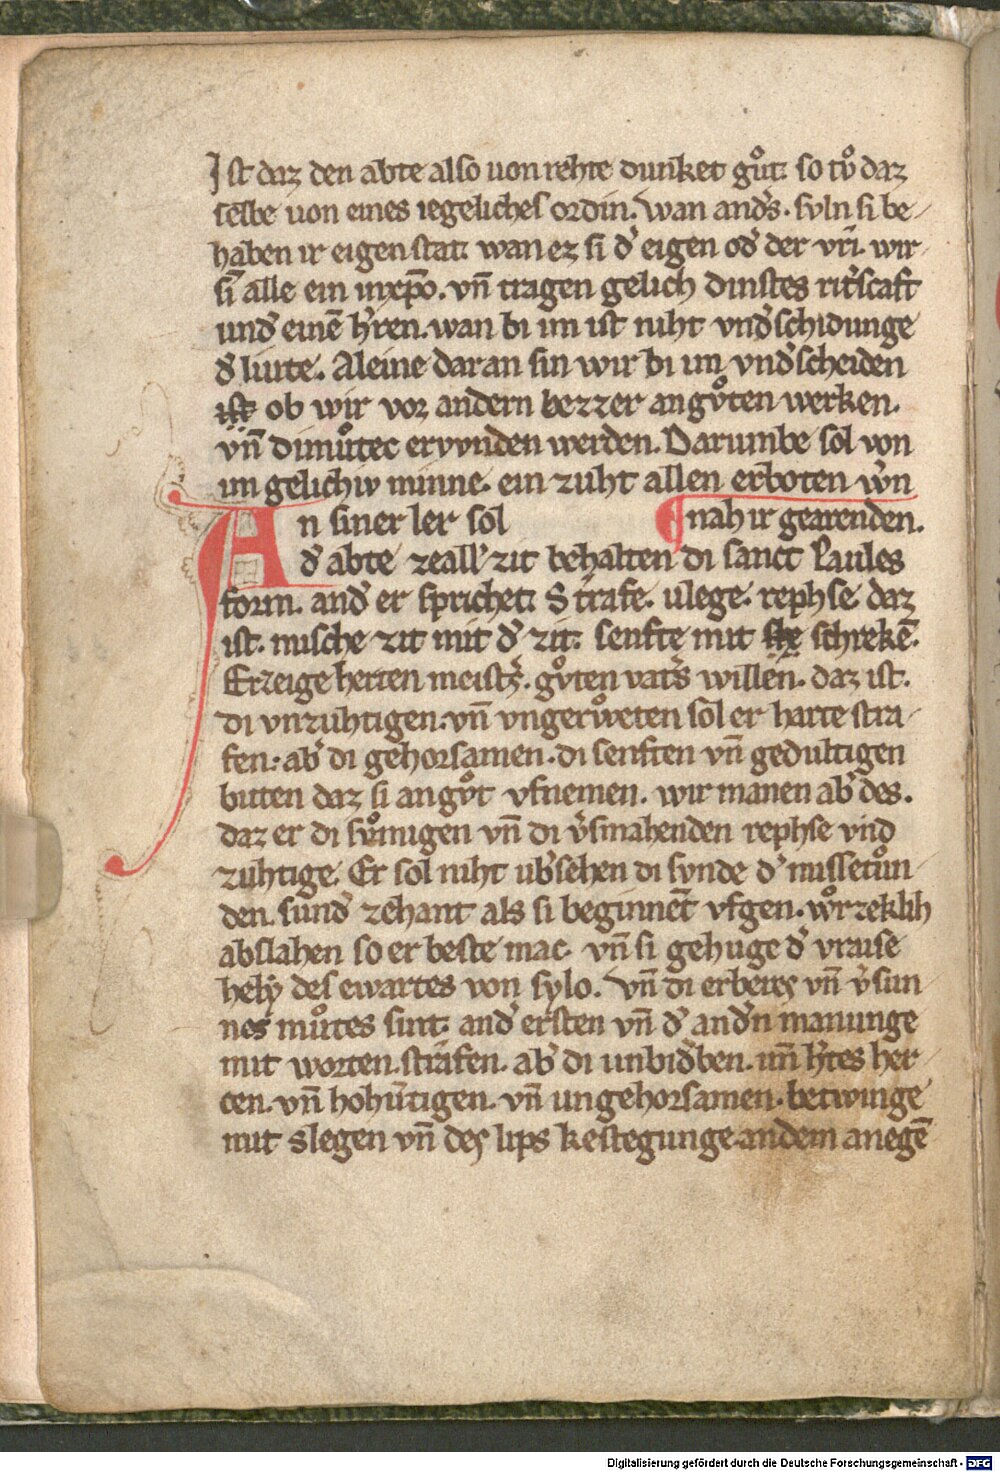 Ist daz den abte also uon rehte dunket guͦt: so tvͦ daz
selbe uon eines iegeliches ordin. wan and͛s. svln si be-
haben ir eigen stat: wan ez si d͛ eigen od͛ der vri. wir
si̅ alle ein in xp̅o. vn̅ tragen gelich dinstes rit͛scaft
und͛ eine̅ h͛ren. wan bi im ist niht vnd͛schidunge
d͛ liute. Aleine daran sin wir bi im vnd͛scheiden
ist ob wir vor andern bezzer an gvͦten werken.
vn̅ dimuͦtec ervvnden werden. Darumbe sol von
im gelichiv minne. ein zuht allen erboten w͛n
An siner ler sol nah ir gearenden.
d͛ abte zeall͛ zit behalten di sanct Paules
form. and͛ er sprichet: Strafe. vlege. rephse. daz
ist. mische zit mit d͛ zit: senfte mit schreke̅.
Erzeige herten meist͛s. gvͦten vat͛s willen. daz ist.
di vnzuhtigen. vn̅ vngerwͦeten sol er harte stra-
fen: ab͛ di gehorsamen. di senften vn̅ gedultigen
biten daz si an gvͦt vfnemen. wir manen ab͛ des.
daz er di svͦmigen vn̅ di v͛smahenden rephse vnd
zuhtige. Er sol niht ub͛sehen di svnde d͛ missetuͦn-
den. sund͛ zehant als si beginne̅t vfgen. wͦrzeklih
abslahen so er beste mac. vn̅ si gehuge d͛ vraise
hely des ewartes von sylo. Vn̅ di erberes vn̅ v͛sun-
nes muͦtes sint: and͛ ersten vn̅ d͛ and͛n manunge
mit worten strafen. ab͛ di unbid͛ben. un̅ h͛tes her-
cen. vn̅ hohu͛tigen. vn̅ ungehorsamen. betwinge
mit slegen vn̅ des lips kestegunge. an dem anege̅